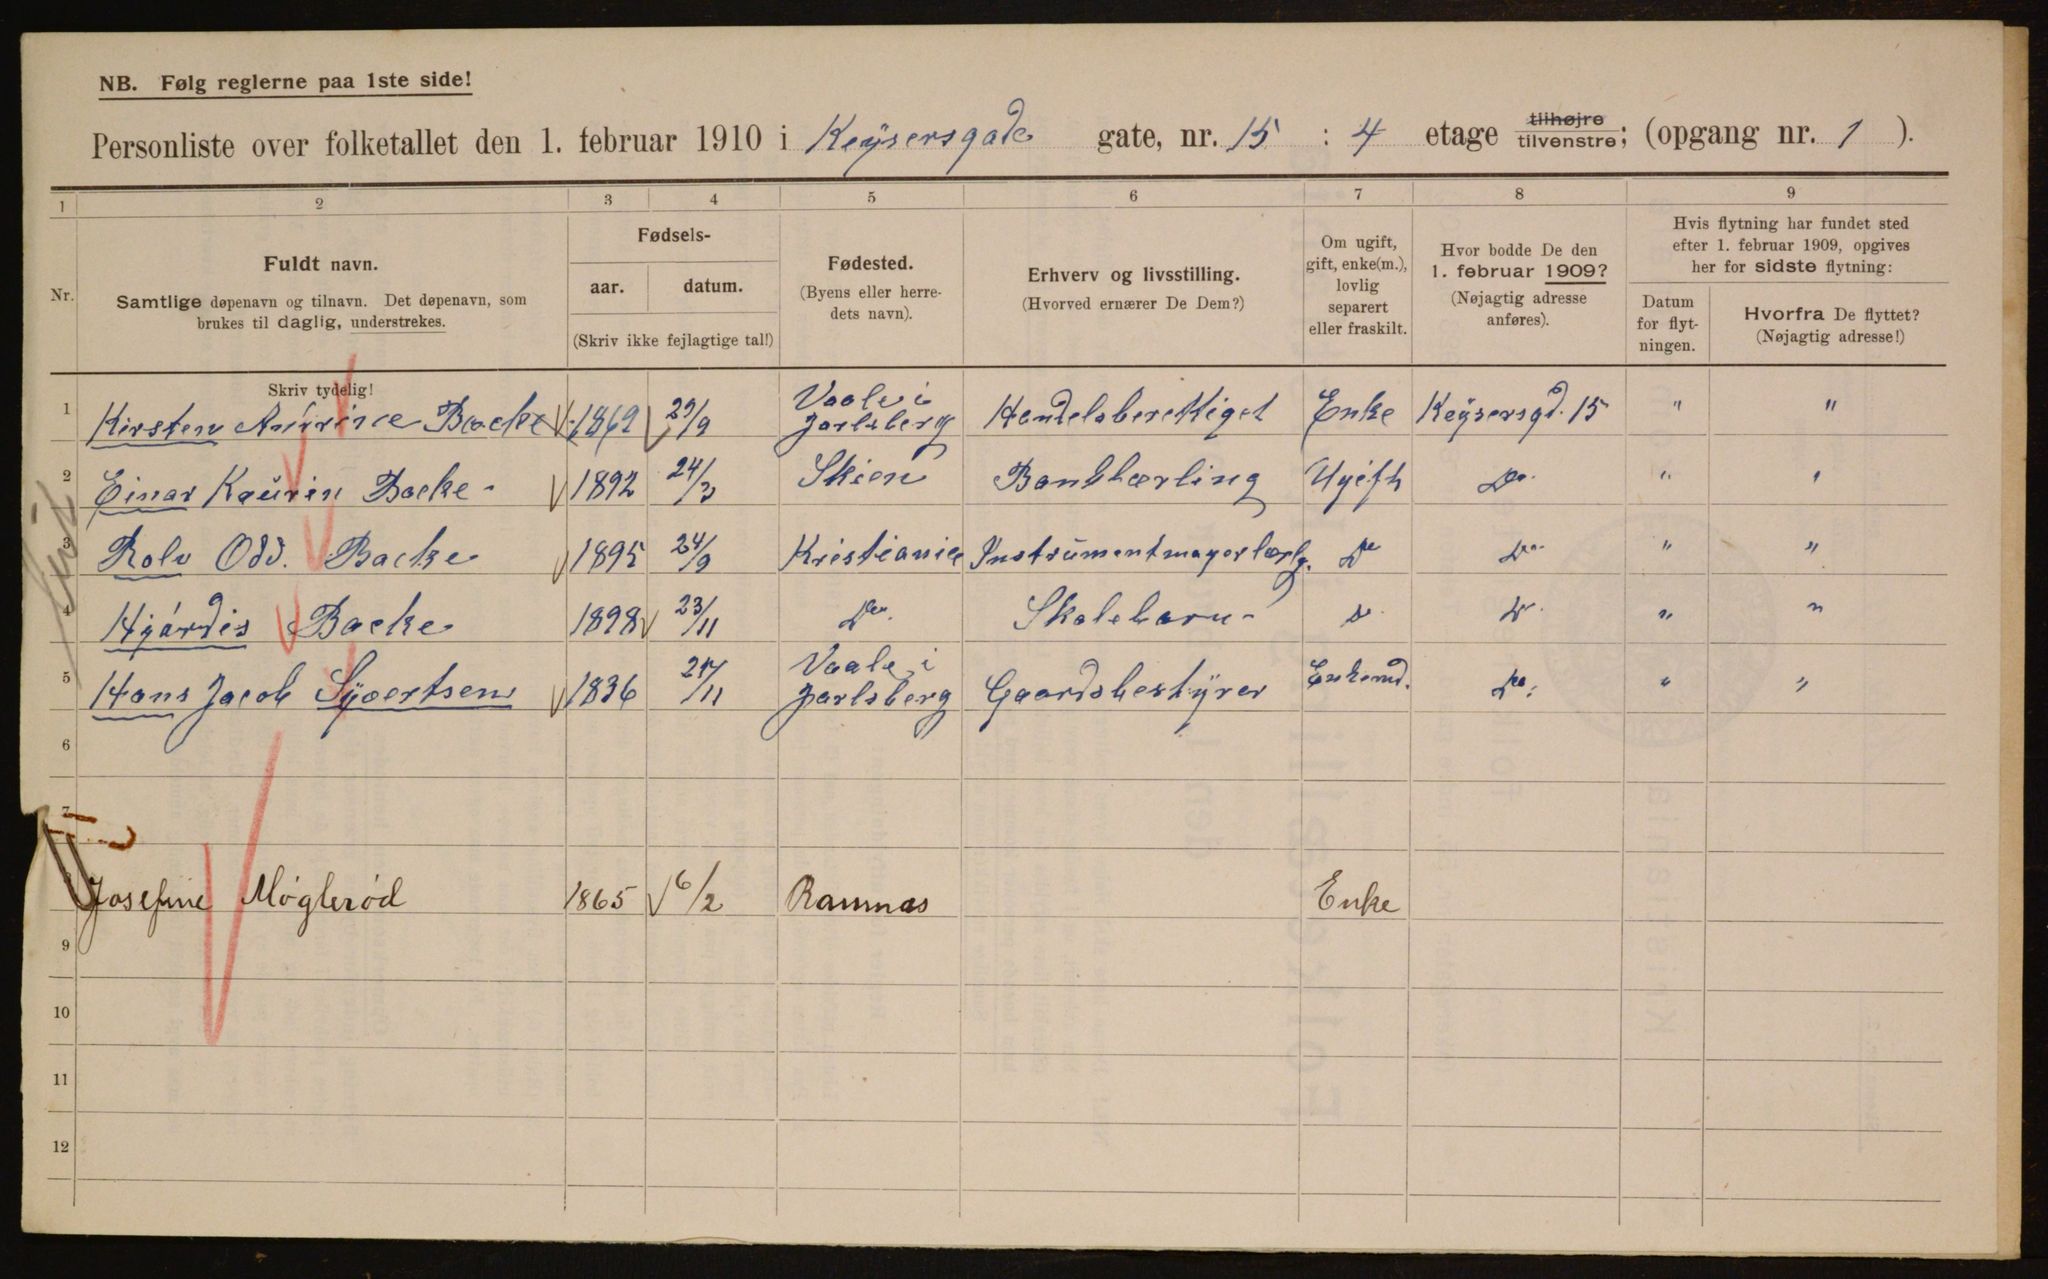 NB. Følg reglerne paa 1ste side!
Personliste over folketallet den 1. februar 1910 i Keysersgade gate, nr. 15 : 4 etage tilhøjre tilvenstre; (opgang nr. 1 ).
1 2 3 4 5 6 7 8 9
Nr.
Fuldt navn.
Samtlige døpenavn og tilnavn. Det døpenavn, som
brukes til daglig, understrekes.
Skriv tydelig!
Fødsels-
aar. datum.
(Skriv ikke fejlagtige tal!)
Fødested.
(Byens eller herre-
dets navn).
Erhverv og livsstilling.
(Hvorved ernærer De Dem?)
Om ugift,
gift, enke(m.),
lovlig
separert
eller fraskilt.
Hvor bodde De den
1. februar 1909?
(Nøjagtig adresse
anføres).
Hvis flytning har fundet sted
efter 1. februar 1909, opgives
her for sidste flytning:
Datum
for flyt-
ningen.
Hvorfra De flyttet?
(Nøjagtig adresse!)
1 Kirsten Backe 1862 29/9 Vaale i Jarlsberg Handelsberettiget Enke Keysersgd. 15 " "
2 Einar Kaurin Backe - 1892 24/3 Skien Banklærling Ugift Do. " "
3 Rolv Odd. Backe 1895 24/9 Kristiania Instrumentmagerlærlg. Do Do. " "
4 Hjórdis Backe 1898 23/11 Do. Skolebarn - Do. Do. " "
5 Hans Jacob Syvertsen 1836 24/11 Vaale i Jarlsberg Gaardsbestyrer Enkemd. Do. " "
6
7
Josefine Møglerød 1865 6/2 Ramnas Enke
9
10
11
12